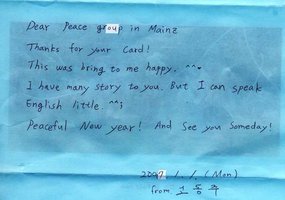 Dear Peace group in Mainz
Thanks for your Card!
This was bring to me happy. ^^*
I have many story to you. But I can speak
English little. ^^;
Peaceful New year! And See you Someday!
2007. 1. 1. (Mon)
from. 고동주